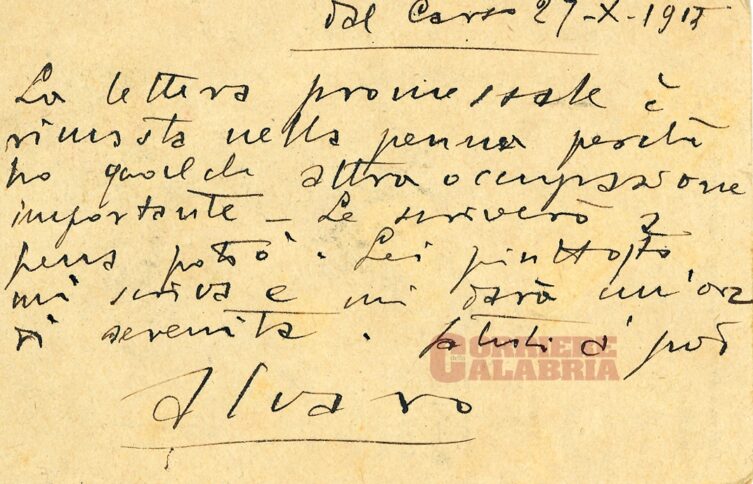 dal Carso 27-X-1917
La lettera promessale è
rimasta nella penna perché
ho qualche altra occupazione
importante – Le scriverò a
pena potrò. Lei piuttosto
mi scriva e mi darà un'ora
di serenità. Saluti a
Alvaro
CORRIERE
della
CALABRIA